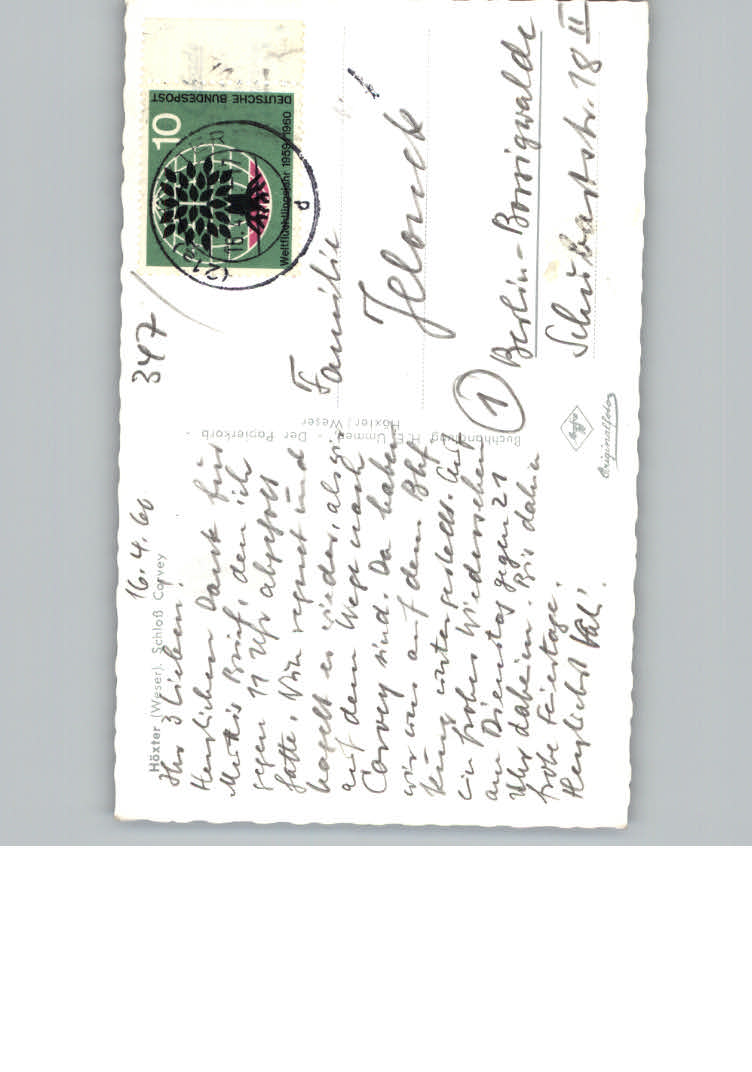 Höxter (Weser). Schloß Corvey
16.4.60
Ihr 3 Lieben!
Herzlichen Dank für
Muttis Brief, den ich
gegen 11 Uhr abgeholt
hatte. Nun regnet und
hagelt es wieder, als wir
auf dem Wege nach
Corvey sind. Da haben
wir uns auf dem Bhf
kurz untergestellt. Auf
ein frohes Wiedersehen
am Dienstag gegen 21
Uhr daheim. Bis dahin
frohe Feiertage.
Herzlichst
Buchhandlung H. E. Ummen - Der Papierkorb -
Höxter / Weser
347
DEUTSCHE BUNDESPOST
10
Weltflüchtlingsjahr 1959/1960
Familie
Jelonek
(1) Berlin-Borsigwalde
Schubartstr. 18 II
Agfa
Originalfoto